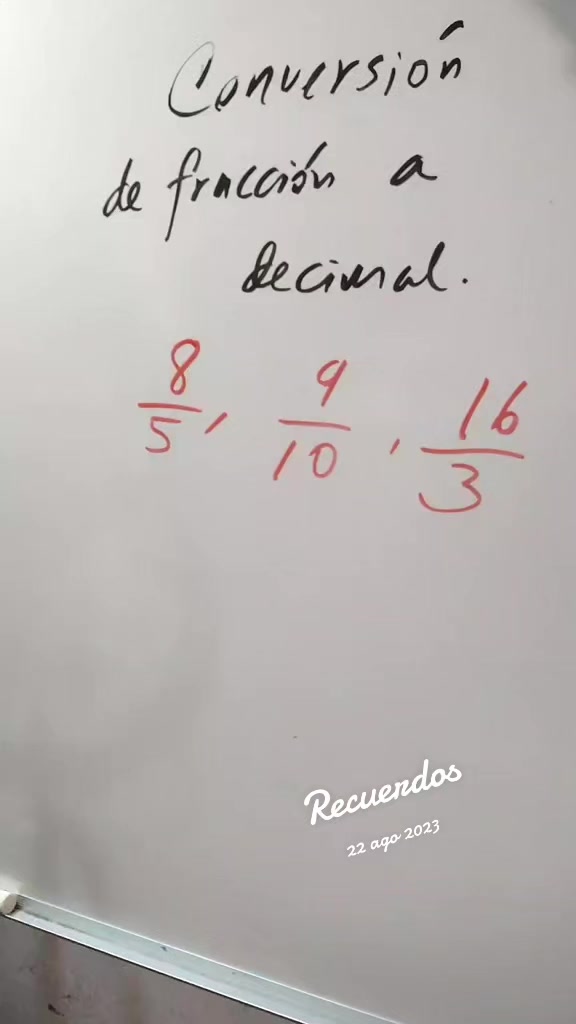 Conversión
de fracción a
decimal.
8/5, 9/10, 16/3
Recuerdos
22 ago 2023